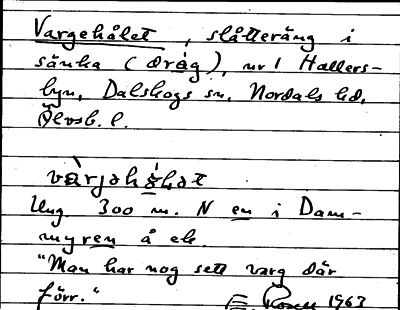 Vargehålet, slåtteräng i
sänka (dråg), nr 1 Hallers-
byn, Dalskogs sn, Nordals hd,
Älvsb. l.
Ung. 300 m. N en i Dam-
myren å ek.
"Man har nog sett varg där
förr."
1963